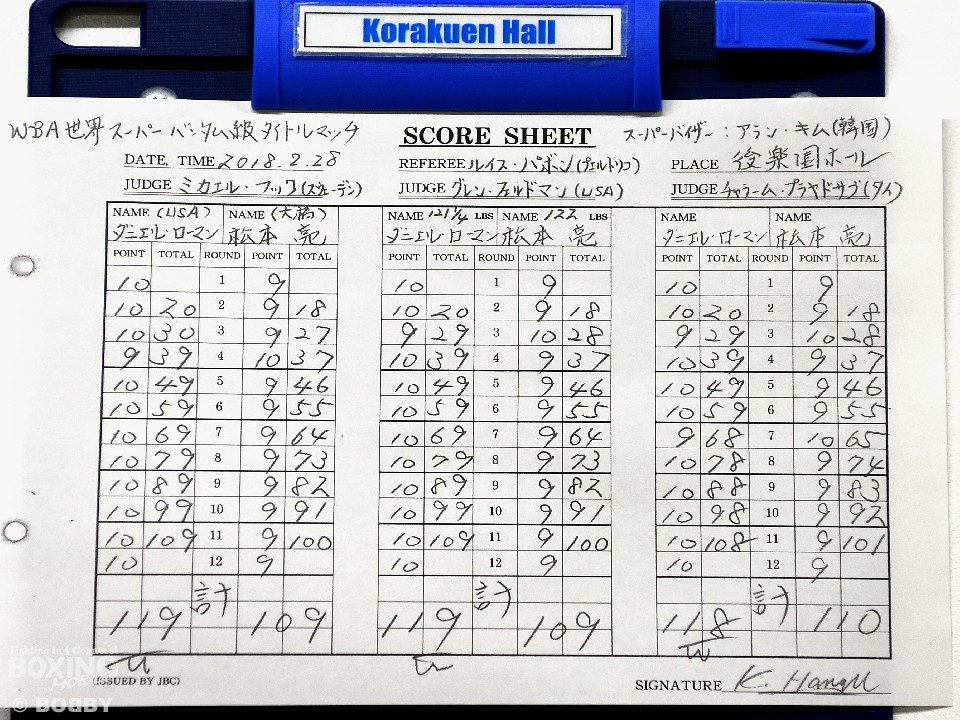 Korakuen Hall
WBA世界スーパーバンタム級タイトルマッチ SCORE SHEET スーパーバイザー：アラン・キム(韓国)
DATE, TIME 2018.2.28 REFEREE ルイス・パボン(プエルトリコ) PLACE 後楽園ホール
JUDGE ミカエル・フック(スウェーデン) JUDGE グレン・フェルドマン(USA) JUDGE チャラーム・プラヤドサブ(タイ)
NAME (USA) NAME (大橋) NAME 121 1/4 LBS NAME 122 LBS NAME NAME
ダニエル・ローマン 松本 亮 ダニエル・ローマン 松本 亮 ダニエル・ローマン 松本 亮
POINT TOTAL ROUND POINT TOTAL POINT TOTAL ROUND POINT TOTAL POINT TOTAL ROUND POINT TOTAL
10 1 9 10 1 9 10 1 9
10 20 2 9 18 10 20 2 9 18 10 20 2 9 18
10 30 3 9 27 9 29 3 10 28 9 29 3 10 28
9 39 4 10 37 10 39 4 9 37 10 39 4 9 37
10 49 5 9 46 10 49 5 9 46 10 49 5 9 46
10 59 6 9 55 10 59 6 9 55 10 59 6 9 55
10 69 7 9 64 10 69 7 9 64 9 68 7 10 65
10 79 8 9 73 10 79 8 9 73 10 78 8 9 74
10 89 9 9 82 10 89 9 9 82 10 88 9 9 83
10 99 10 9 91 10 99 10 9 91 10 98 10 9 92
10 109 11 9 100 10 109 11 9 100 10 108 11 9 101
10 12 9 10 12 9 10 12 9
計 計 計
119 109 119 109 118 110
(ISSUED BY JBC) SIGNATURE K.
Fighting in 4 Corners!
BOXING MOBILE
© BOBBY